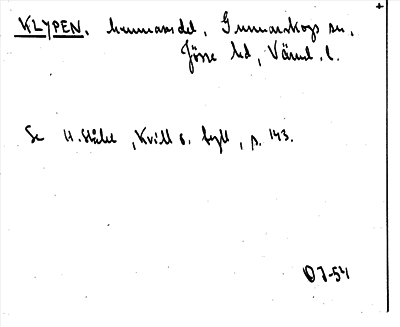 KLYPEN. hemmansdel, Gunnarskogs sn,
Jösse hd, Värml. l.
Se H. Ståhl, Kvill o. bygd, p. 143.
OJ-54